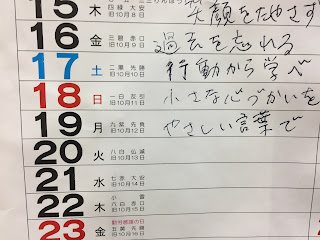 15 木 四緑 大安 旧10月8日 笑顔をたやさず
16 金 三碧 赤口 旧10月9日 過去を忘れる
17 土 二黒 先勝 旧10月10日 行動から学べ
18 日 一白 友引 旧10月11日 小さな心づかいを
19 月 九紫 先負 旧10月12日 やさしい言葉で
20 火 八白 仏滅 旧10月13日
21 水 七赤 大安 旧10月14日
22 木 小雪 六白 赤口 旧10月15日
23 金 勤労感謝の日 五黄 先勝 旧10月16日